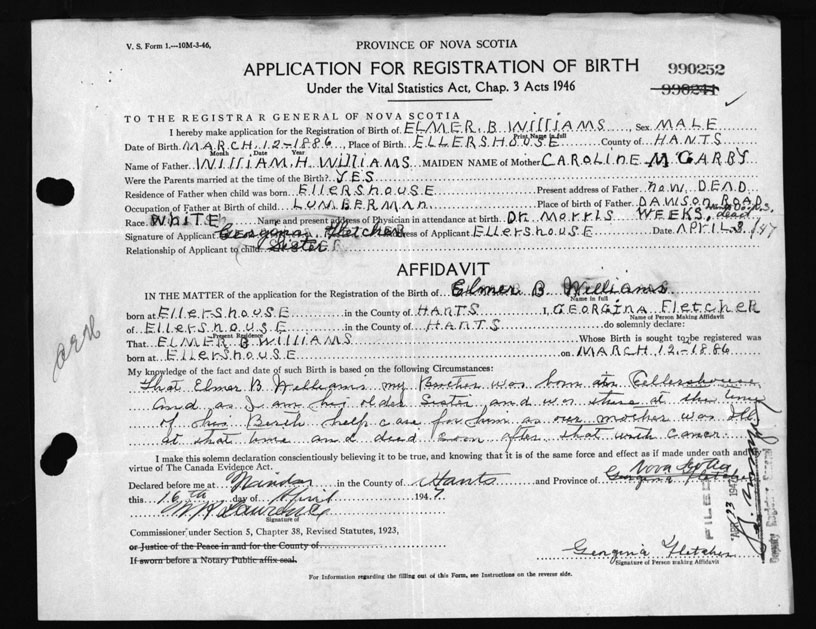 V. S. Form 1.—10M-3-46.
PROVINCE OF NOVA SCOTIA
APPLICATION FOR REGISTRATION OF BIRTH 990252
Under the Vital Statistics Act, Chap. 3 Acts 1946 990241
TO THE REGISTRAR GENERAL OF NOVA SCOTIA
I hereby make application for the Registration of Birth of ELMER B WilliAMS Sex MALE
Print Name in full
Date of Birth MARCH 12-1886 Place of Birth ELLERSHOUSE County of HANTS
Month Date Year
Name of Father WilliAM H WilliAMS MAIDEN NAME of Mother CAROLINE
Were the Parents married at the time of the Birth? YES
Residence of Father when child was born EllERSHOUSE Present address of Father now DEAD
Occupation of Father at Birth of child LUMBERMAN Place of birth of Father DAWSON ROAD
Race WHITE Name and present address of Physician in attendance at birth DR MORRIS WEEKS dead
Signature of Applicant Georgina Fletcher Address of Applicant EllERSHOUSE Date APRIL 47
Relationship of Applicant to child Sister
AFFIDAVIT
IN THE MATTER of the application for the Registration of the Birth of Elmer B Williams
Name in full
born at EllERSHOUSE in the County of HANTS I, GEORGINA FletcHER
Name of Person Making Affidavit
of EllERSHOUSE in the County of HANTS do solemnly declare:
Present Residence
That ELMER B WilliAMS Whose Birth is sought to be registered was
born at EllERSHOUSE on MARCH 12-1886
My knowledge of the fact and date of such Birth is based on the following Circumstances:
That Elmer B Williams my Brother was born at Ellershouse
and as I am his older Sister and was there at the time
of his Birth help care for him as our mother was Ill
at that time and died soon after that with cancer
I make this solemn declaration conscientiously believing it to be true, and knowing that it is of the same force and effect as if made under oath and by
virtue of The Canada Evidence Act.
Declared before me at Windsor in the County of Hants and Province of Nova Scotia
Georgina Fletcher
this 16th day of April 1947
Signature of
Commissioner under Section 5, Chapter 38, Revised Statutes, 1923,
or Justice of the Peace in and for the County of
If sworn before a Notary Public affix seal.
Georgina Fletcher
Signature of Person making Affidavit
For Information regarding the filling out of this Form, see Instructions on the reverse side.
FILED